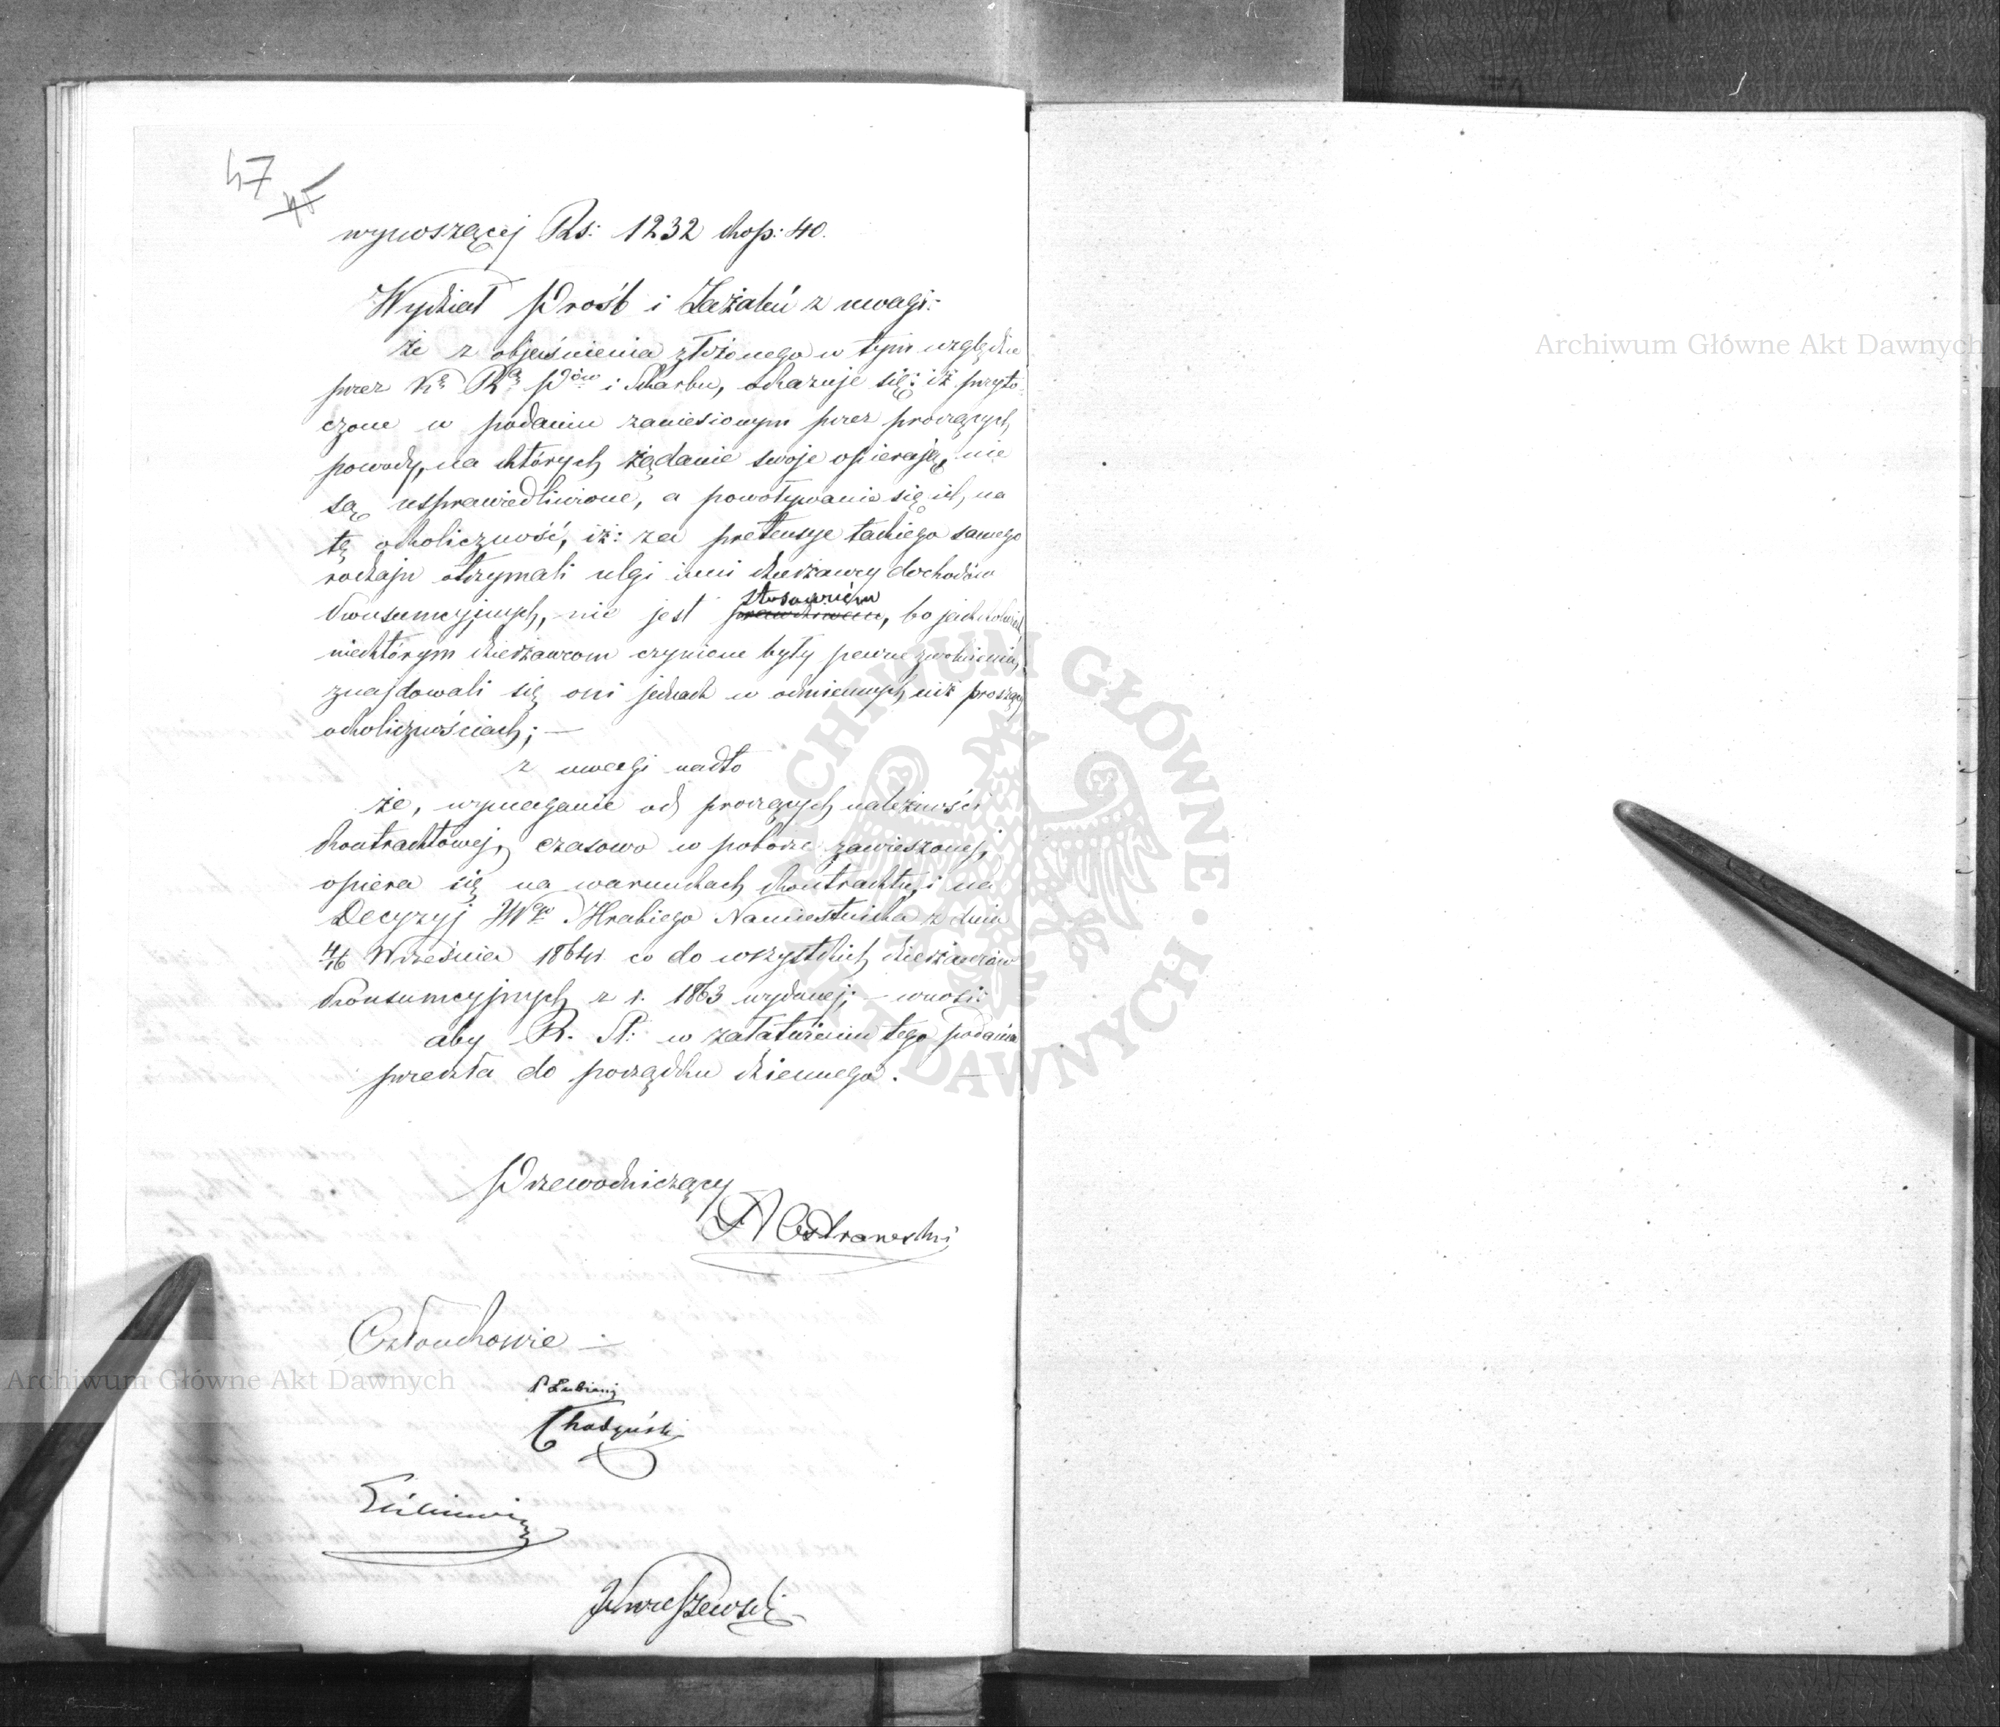 47
45
wynoszącej Rs: 1232 kop: 40.
Wydział Prośb i Zażaleń z uwagi:
że z objaśnienia złożonego w tym względzie
przez K. R. P. i Skarbu, okazuje się: iż przyto-
czone w podaniu zaniesionym przez proszących
powody, na których żądanie swoje opierają, nie
są usprawiedliwione, a powoływanie się ich, na
tę okoliczność, iż: za pretensye takiego samego
rodzaju otrzymali ulgi inni dzierżawcy dochodów
konsumcyjnych, nie jest stosownem, bo jakkolwiek
niektórym dzierżawcom czynione były pewne zwolnienia,
znajdowali się oni jednak w odmiennych niż proszący
okolicznościach; —
z uwagi nadto
że, wymaganie od proszących należności
kontraktowej, czasowo w poborze zawieszonej,
opiera się na warunkach kontraktu, i na
Decyzyj JW Hrabiego Namiestnika z dnia
4/16 Września 1864 r. co do wszystkich dzierżawców
konsumcyjnych z r. 1863 wydanej; — wnosi:
aby R. St: w załatwieniu tego podania
przeszła do porządku dziennego. —
Przewodniczący
A Ostrowski
Członkowie —
Łubieński
Chodyński
Kruszewski
Archiwum Główne Akt Dawnych
Archiwum Główne Akt Dawnych
ARCHIWUM GŁÓWNE · AKT DAWNYCH ·